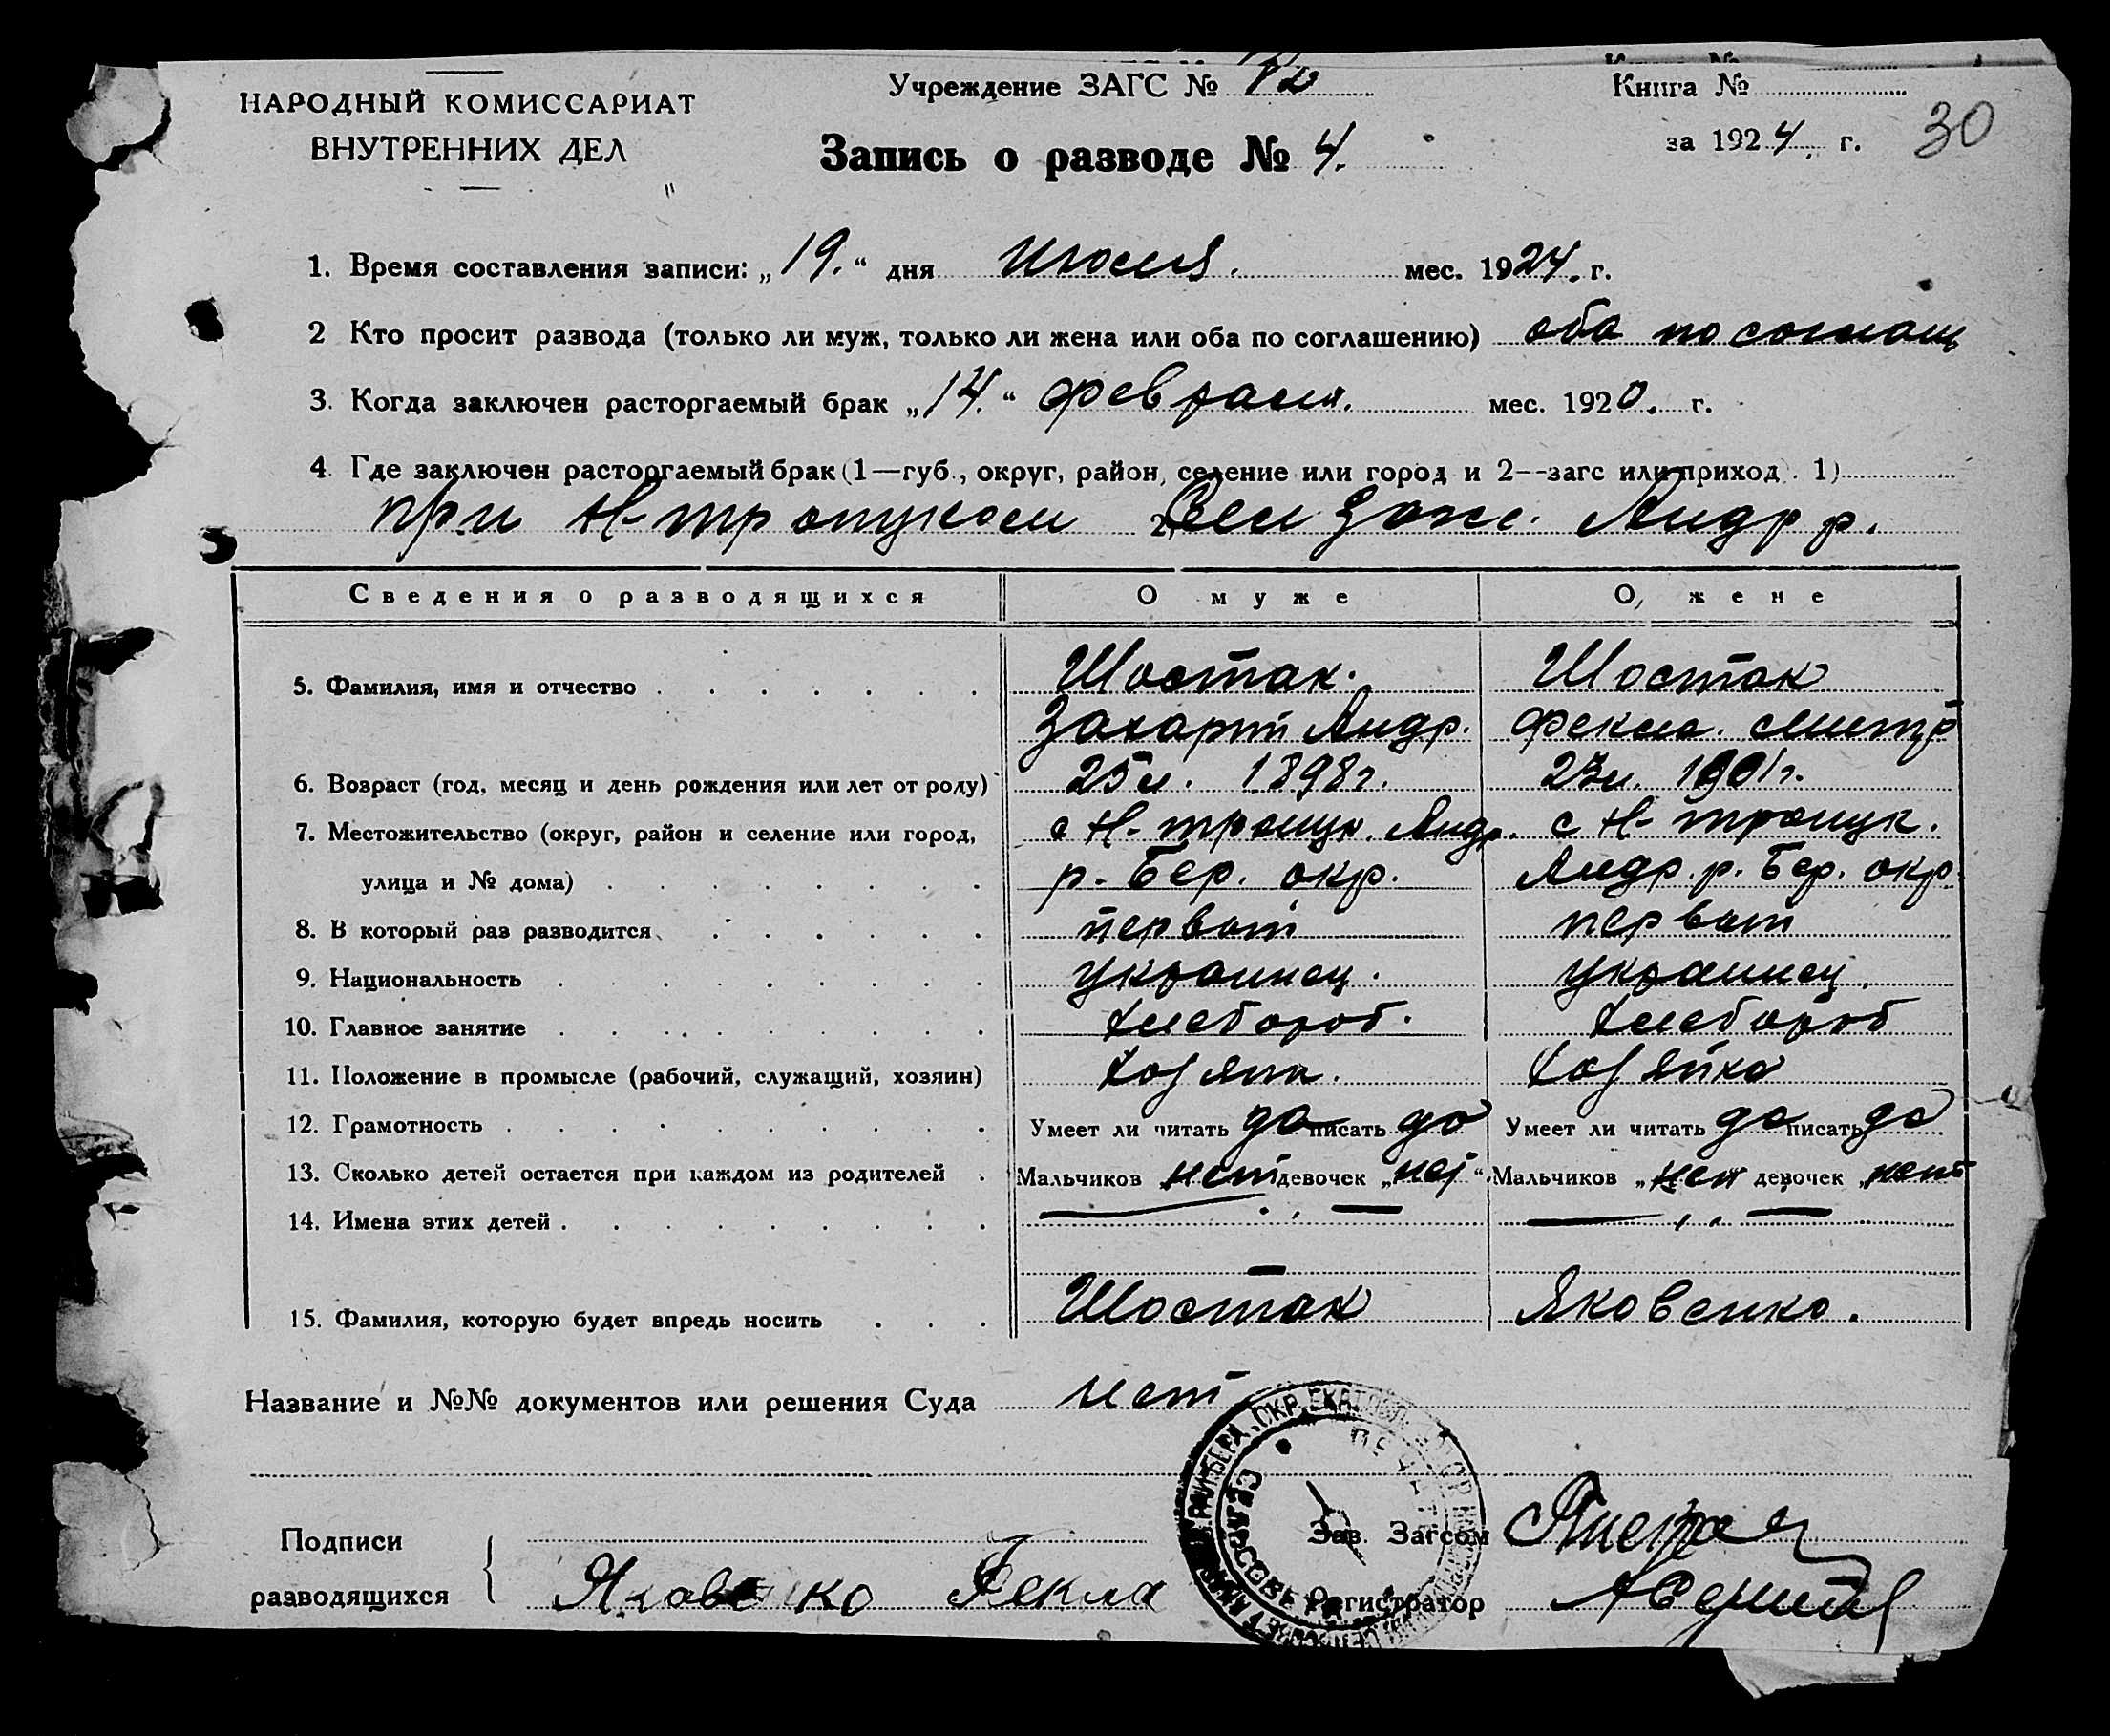 НАРОДНЫЙ КОМИССАРИАТ
ВНУТРЕННИХ ДЕЛ
Учреждение ЗАГС №
Книга №
за 1924 г.
30
Запись о разводе № 4.
1. Время составления записи: „19.“ дня июля. мес. 1924. г.
2 Кто просит развода (только ли муж, только ли жена или оба по соглашению) оба по соглаш
3. Когда заключен расторгаемый брак „14.“ февраля. мес. 1920. г.
4. Где заключен расторгаемый брак (1—губ., округ, район, селение или город и 2--загс или приход). 1)
при Н-троицком 2) Андр р.
Сведения о разводящихся О муже О жене
5. Фамилия, имя и отчество Шостак. Шостак
Захарий Андр. Фекла.
6. Возраст (год, месяц и день рождения или лет от роду) 25 л. 1898 г. 23 л. 1901 г.
7. Местожительство (округ, район и селение или город, с Н-троицк. Андр. с Н-троицк.
улица и № дома) р. Бер. окр. Андр. р. Бер. окр
8. В который раз разводится первый первый
9. Национальность украинец. украинец.
10. Главное занятие хлебороб. хлебороб
11. Положение в промысле (рабочий, служащий, хозяин) хозяин. хозяйка
12. Грамотность Умеет ли читать да писать да Умеет ли читать да писать да
13. Сколько детей остается при каждом из родителей Мальчиков нет девочек „нет“ Мальчиков „нет девочек „нет
14. Имена этих детей
15. Фамилия, которую будет впредь носить Шостак Яковенко.
Название и №№ документов или решения Суда нет
Подписи
разводящихся
Яковенко Фекла
Зав. Загсом
Регистратор